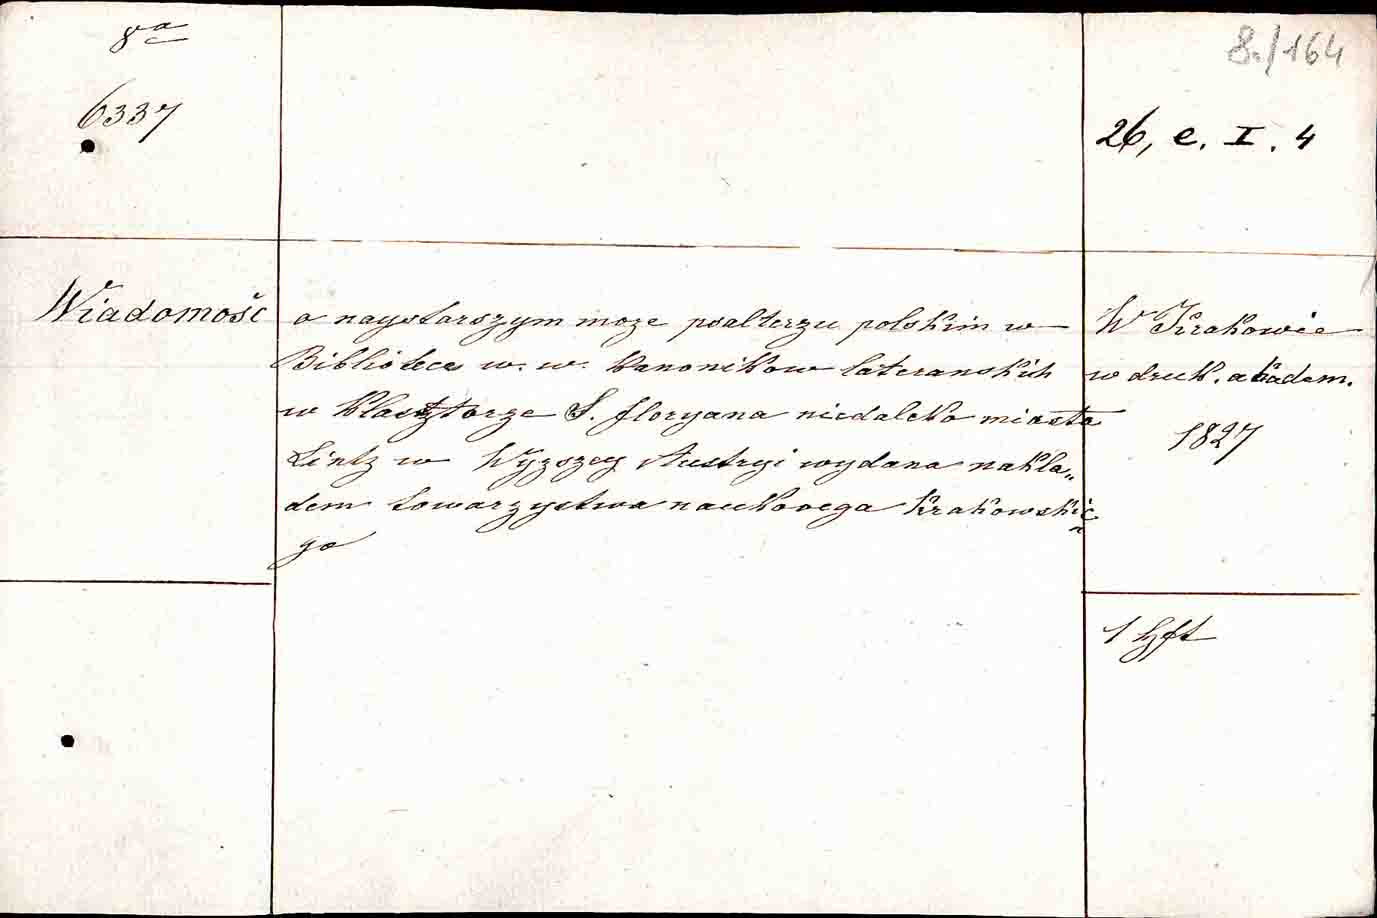 8va
6337
8./164
26, e. I. 4
Wiadomość
o naystarszym może psałterzu polskim w
Bibliotece w. w. kanonikow lateranskich
w klasztorze S. floryana niedaleko miasta
Lintz w Wyzszey Austryi wydana nakła„
dem towarzystwa naukowego krakowskie„
go
W Krakowie
w druk. akadem.
1827
1 Hft